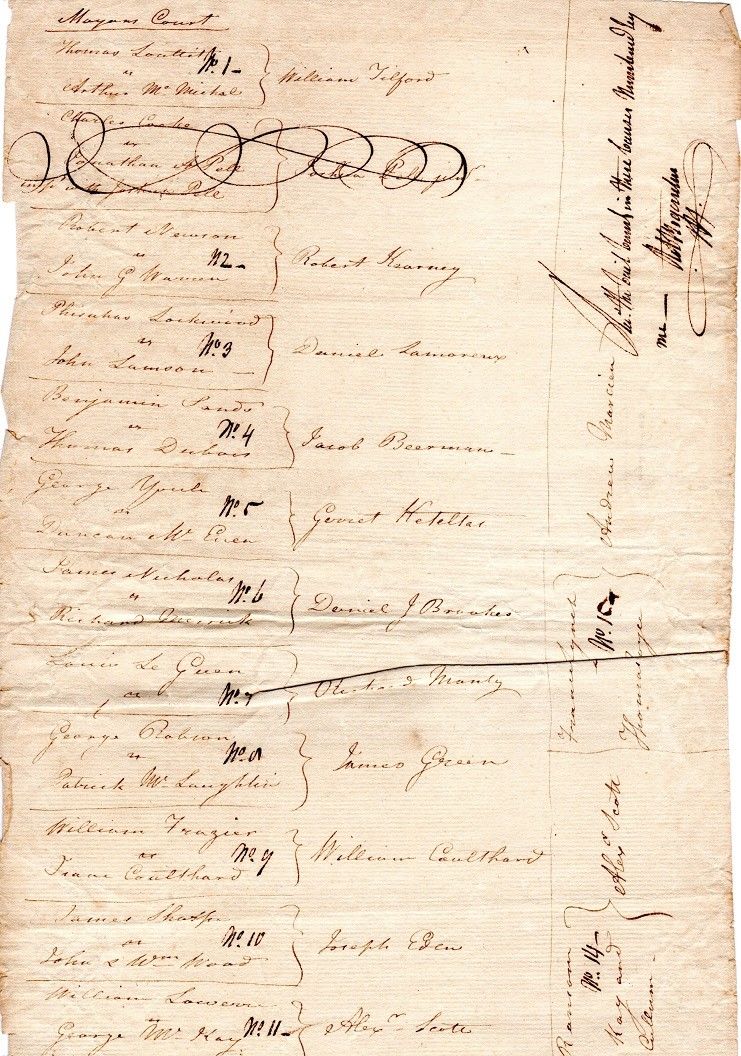 Mayors Court
Thomas
No. 1
vs
Arthur Mc Michal
William Tilford
Charles Cooke
vs
Jonathan A Pell
Pell
Robert Newson
vs No 2
John G Warren
Robert Kearney
Phinehas Lockwood
vs No. 3
John Lamson
Daniel Lamoreux
Benjamin Sands
vs No. 4
Thomas Dubois
Jacob Beerman
George Youle
vs No. 5
Duncan Mc Ewen
Gerrit Keteltas
James Nicholas
vs No. 6
Richard
Daniel J Brookes
Louis Le Guen
vs No. 7
Richard Manly
George Robson
vs No. 8
Patrick Mc Laughlin
James Green
William Frazier
vs No 9
Isaac Coulthard
William Coulthard
James Sharpe
vs No. 10
John & Wm Wood
Joseph Eden
William
George Mc Kay No. 11
Alexr Scott
Ransom
No. 14
Kay and
Alexr Scott
Francis Lynch
No. 15
Thomas
Andrew
in these causes Numbered by
me